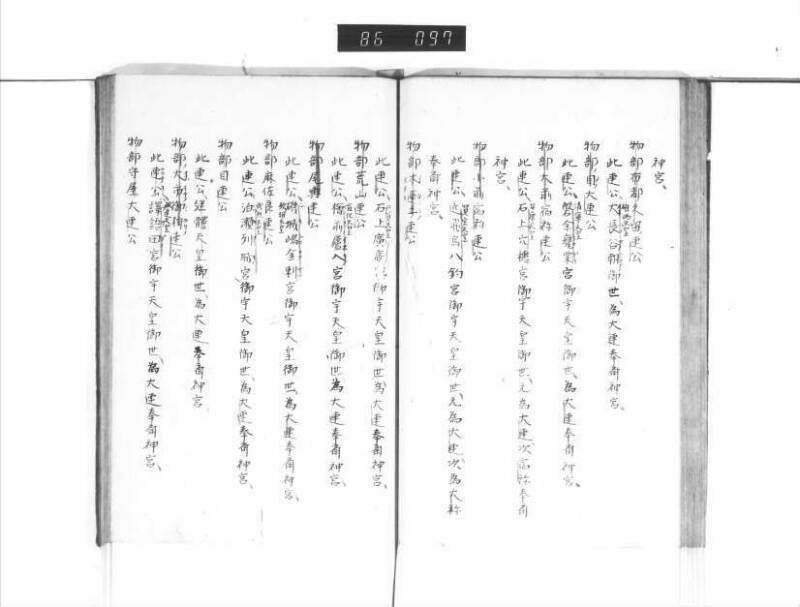 86 097
神宮、
物部布都久留連公
此連公、大長谷朝御世、為大連奉斎神宮、
物部目大連公
此連公、磐余甕栗宮御宇天皇御世、為大連奉斎神宮、
物部木蓮宿祢連公
此連公、石上穴穂宮御宇天皇御世、元為大連、次宿祢奉斎
神宮、
物部小前宿祢連公
此連公、近飛鳥八釣宮御宇天皇御世、元為大連、次為大祢
奉斎神宮、
物部木蓮子連公
此連公、石上廣高宮御宇天皇御世、為大連奉斎神宮、
物部荒山連公
此連公、檜前廬入宮御宇天皇御世為大連奉斎神宮、
物部尾輿連公
此連公、磯城嶋金刺宮御宇天皇御世、為大連奉斎神宮、
物部麻佐良連公
此連公、泊瀬列城宮御宇天皇御世、為大連奉斎神宮、
物部目連公
此連公継體天皇御世、為大連奉斎神宮
物部大市御狩連公
此連公、譯語田宮御宇天皇御世、為大連奉斎神宮、
物部守屋大連公